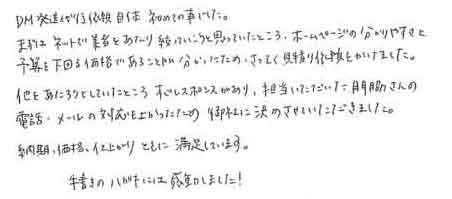 DM発送代行依頼自体 初めての事でした。
まずは ネットで業者をあたり 絞っていこうと思っていたところ、ホームページの分かりやすさと
予算を下回る価格であることが 分かったため、さっそく見積り依頼をかけました。
他をあたろうとしていたところ すぐレスポンスがあり、担当いただいた 服部さんの
電話・メールの対応も良かったため 御社に決めさせていただきました。
納期、価格、仕上がり ともに 満足しています。
手書きのハガキには 感動しました!